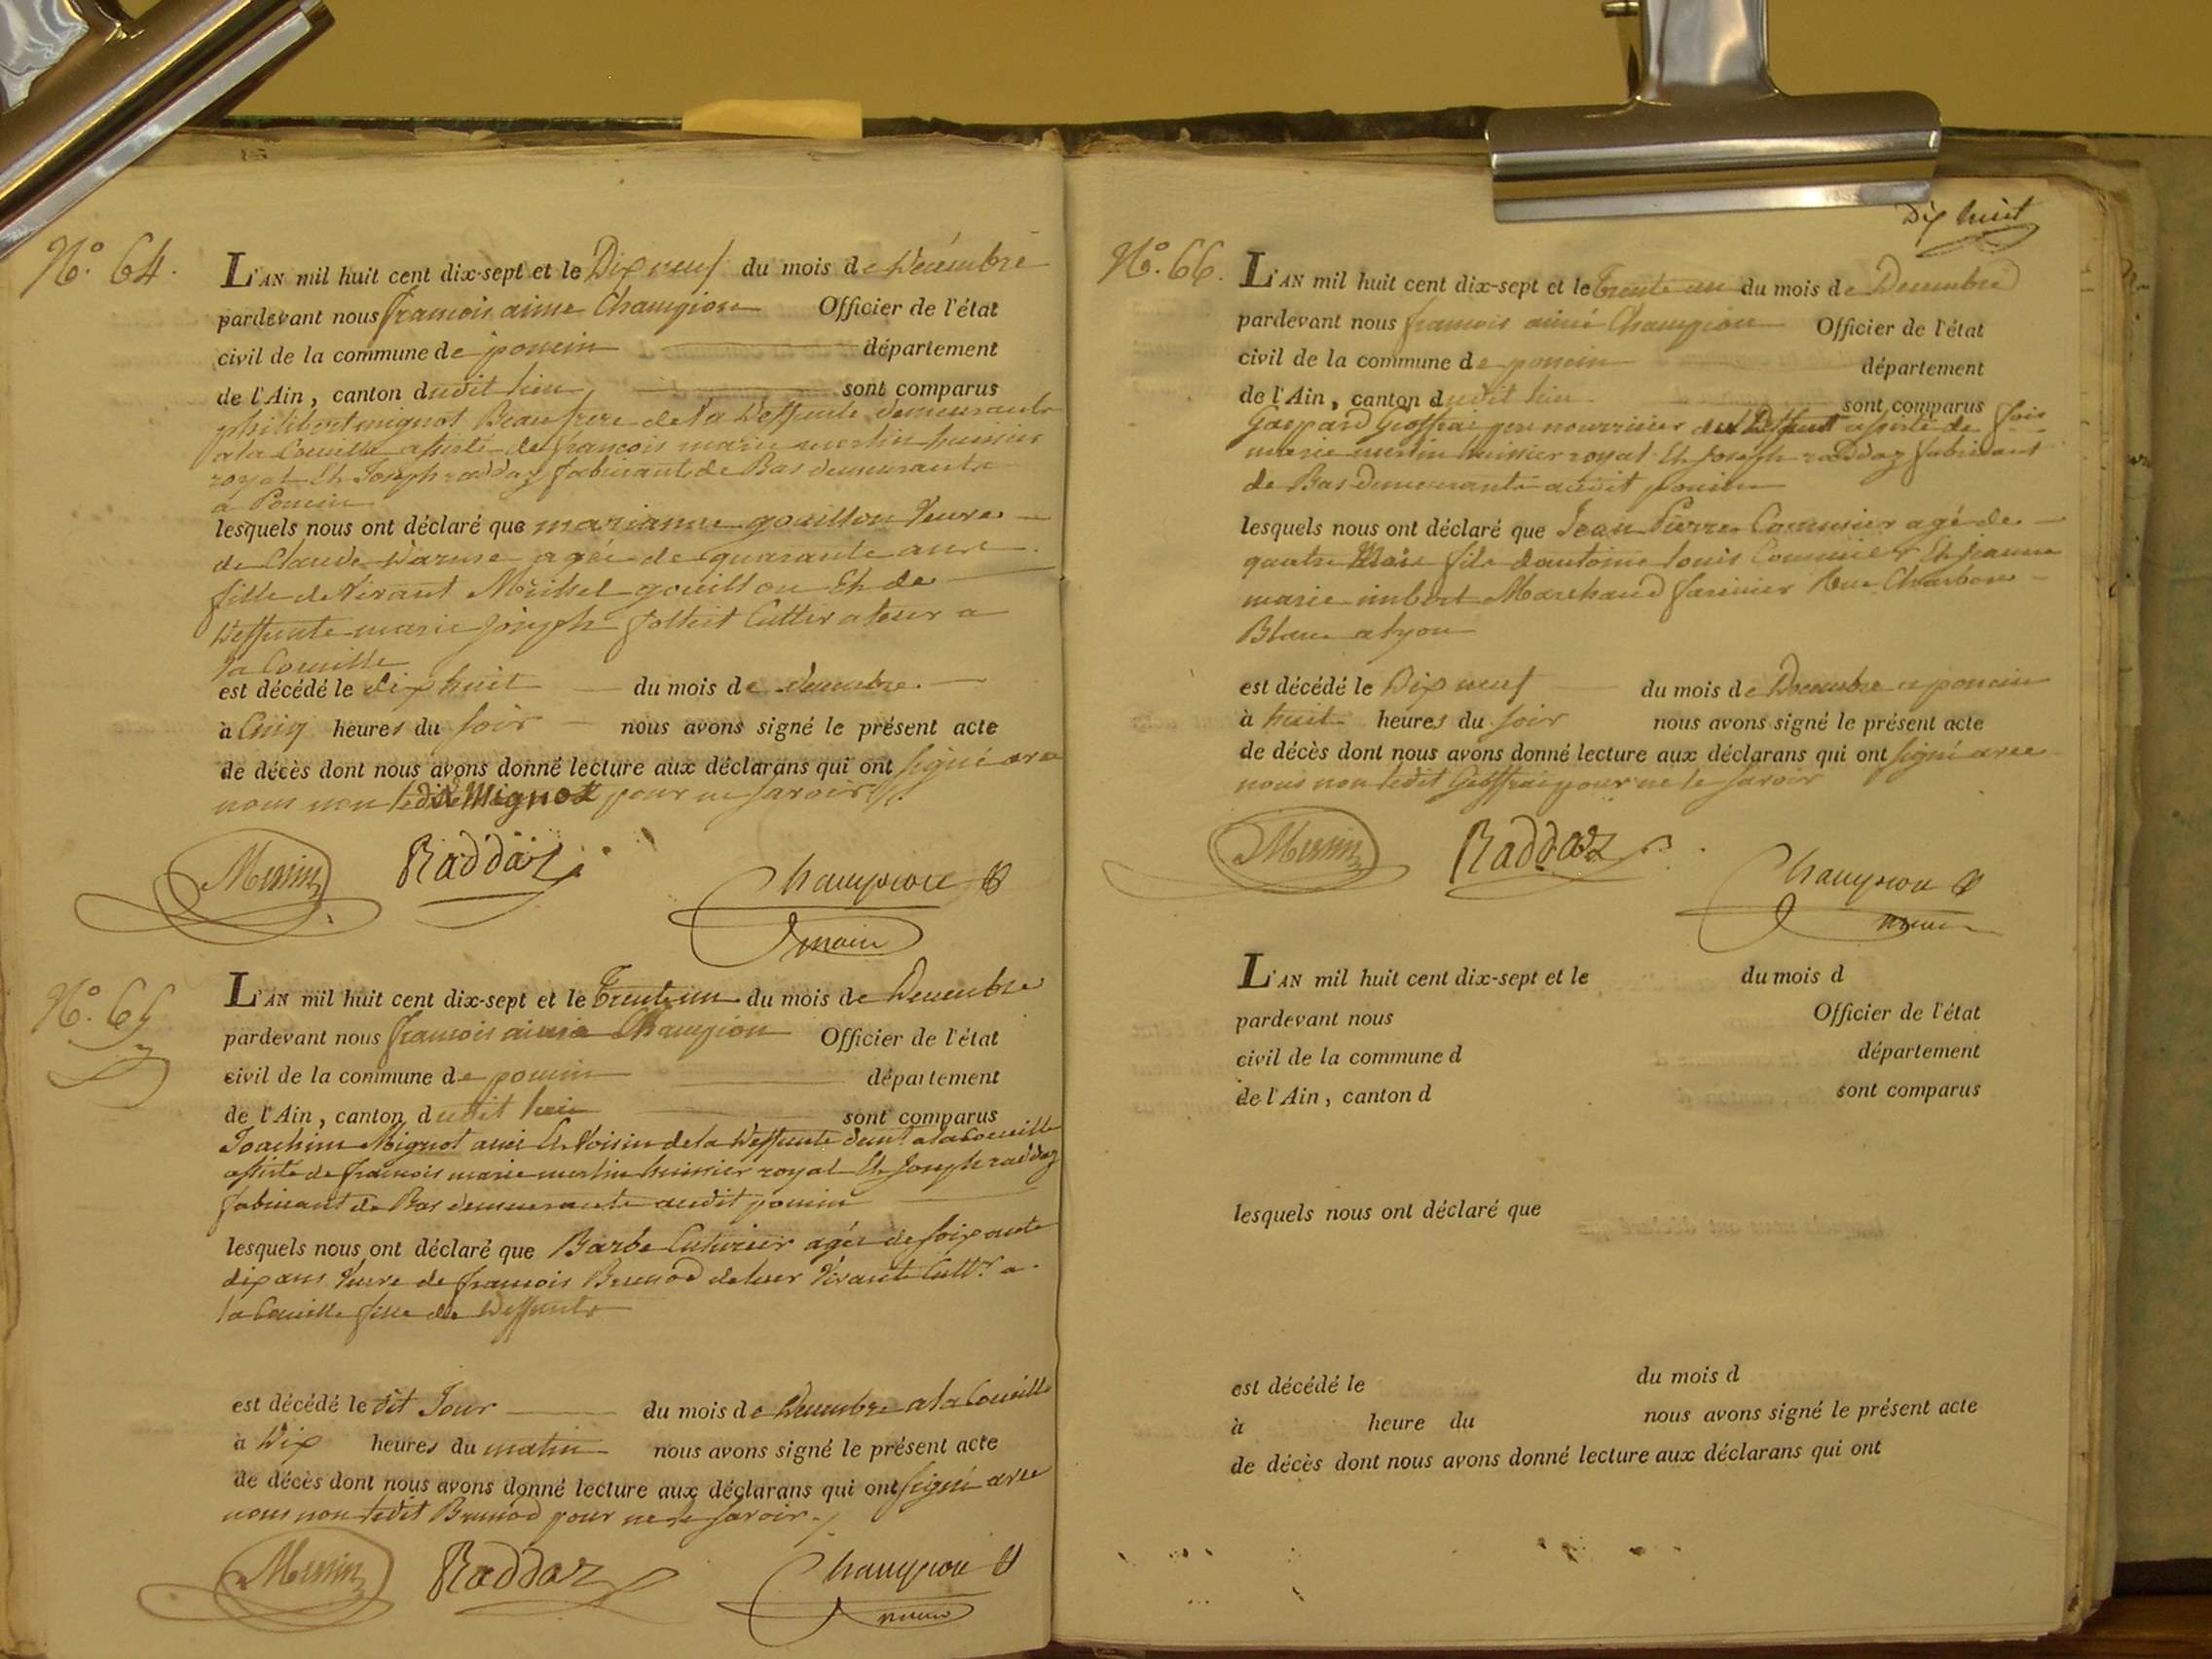 N.° 64.
L'AN mil huit cent dix-sept et le Dix neuf du mois de Décembre
pardevant nous francois aimé Champion Officier de l'état
civil de la commune de poncin département
de l'Ain, canton dudit lieu sont comparus
philibert mignot Beau frere de la Deffunte demeurant
a la Coueille assisté de francois marie merlin huissier
royal Et Joseph raddaz fabricant de Bas demeurants
a Poncin
lesquels nous ont déclaré que marianne gouillon Veuve
de Claude agée de quarante ans
fille de Vivant Michel gouillon Et de
Deffunte marie Joseph Cultivateur a
la Coueille
est décédé le dix huit du mois de decembre
à Cinq heures du soir nous avons signé le présent acte
de décès dont nous avons donné lecture aux déclarans qui ont signé avec
nous non ledit Mignot pour ne savoir
Merlin Raddaz Champion
maire
N.° 65
L'AN mil huit cent dix-sept et le Trente un du mois de Decembre
pardevant nous francois aimé Champion Officier de l'état
civil de la commune de poncin département
de l'Ain, canton dudit lieu sont comparus
Joachim Mignot ami Et Voisin de la Deffunte demt a la Coueille
assisté de francois marie merlin huissier royal Et Joseph raddaz
fabricant de Bas demeurants audit poncin
lesquels nous ont déclaré que Barbe agée de soixante
dix ans Veuve de francois Brunod de leur Vivant Cultr a
la Coueille fille de Deffunts
est décédé le dit Jour du mois de Decembre a la Coueille
à Dix heures du matin nous avons signé le présent acte
de décès dont nous avons donné lecture aux déclarans qui ont signé avec
nous non ledit Brunod pour ne savoir
Merlin Raddaz Champion
maire
Dix huit
N.° 66.
L'AN mil huit cent dix-sept et le Trente un du mois de Decembre
pardevant nous francois aimé Champion Officier de l'état
civil de la commune de poncin département
de l'Ain, canton dudit lieu sont comparus
Gaspard Geoffrai pere nourricier du Deffunt assisté de fois
marie merlin huissier royal Et Joseph raddaz fabricant
de Bas demeurants audit poncin
lesquels nous ont déclaré que Jean Pierre agé de
quatre Mois fils d'antoine louis Et jeanne
marie imbert Marchand farinier Rue Charbon
Blanc a lyon
est décédé le Dix neuf du mois de Decembre a poncin
à huit heures du soir nous avons signé le présent acte
de décès dont nous avons donné lecture aux déclarans qui ont signé avec
nous non ledit Geoffrai pour ne le savoir
Merlin Raddaz Champion
maire
L'AN mil huit cent dix-sept et le du mois d
pardevant nous Officier de l'état
civil de la commune d département
de l'Ain, canton d sont comparus
lesquels nous ont déclaré que
est décédé le du mois d
à heure du nous avons signé le présent acte
de décès dont nous avons donné lecture aux déclarans qui ont